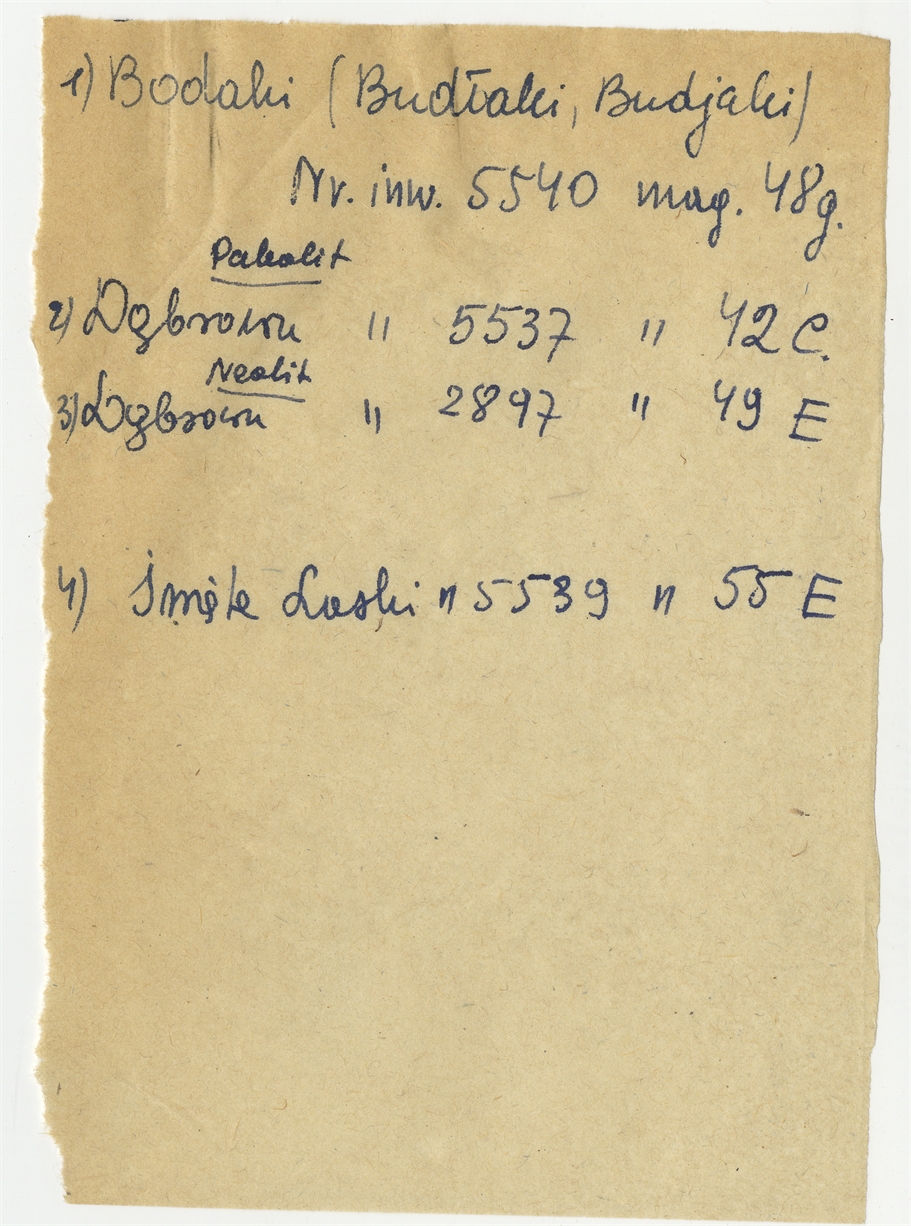 1) Bodaki (Budłaki, Budjaki)
Nr. inw. 5540 mag. 48g.
Paleolit
2) Dąbrowa " 5537 " 42 C.
Neolit
3) Dąbrowa " 2897 " 49 E
4) Laski " 5539 " 55 E